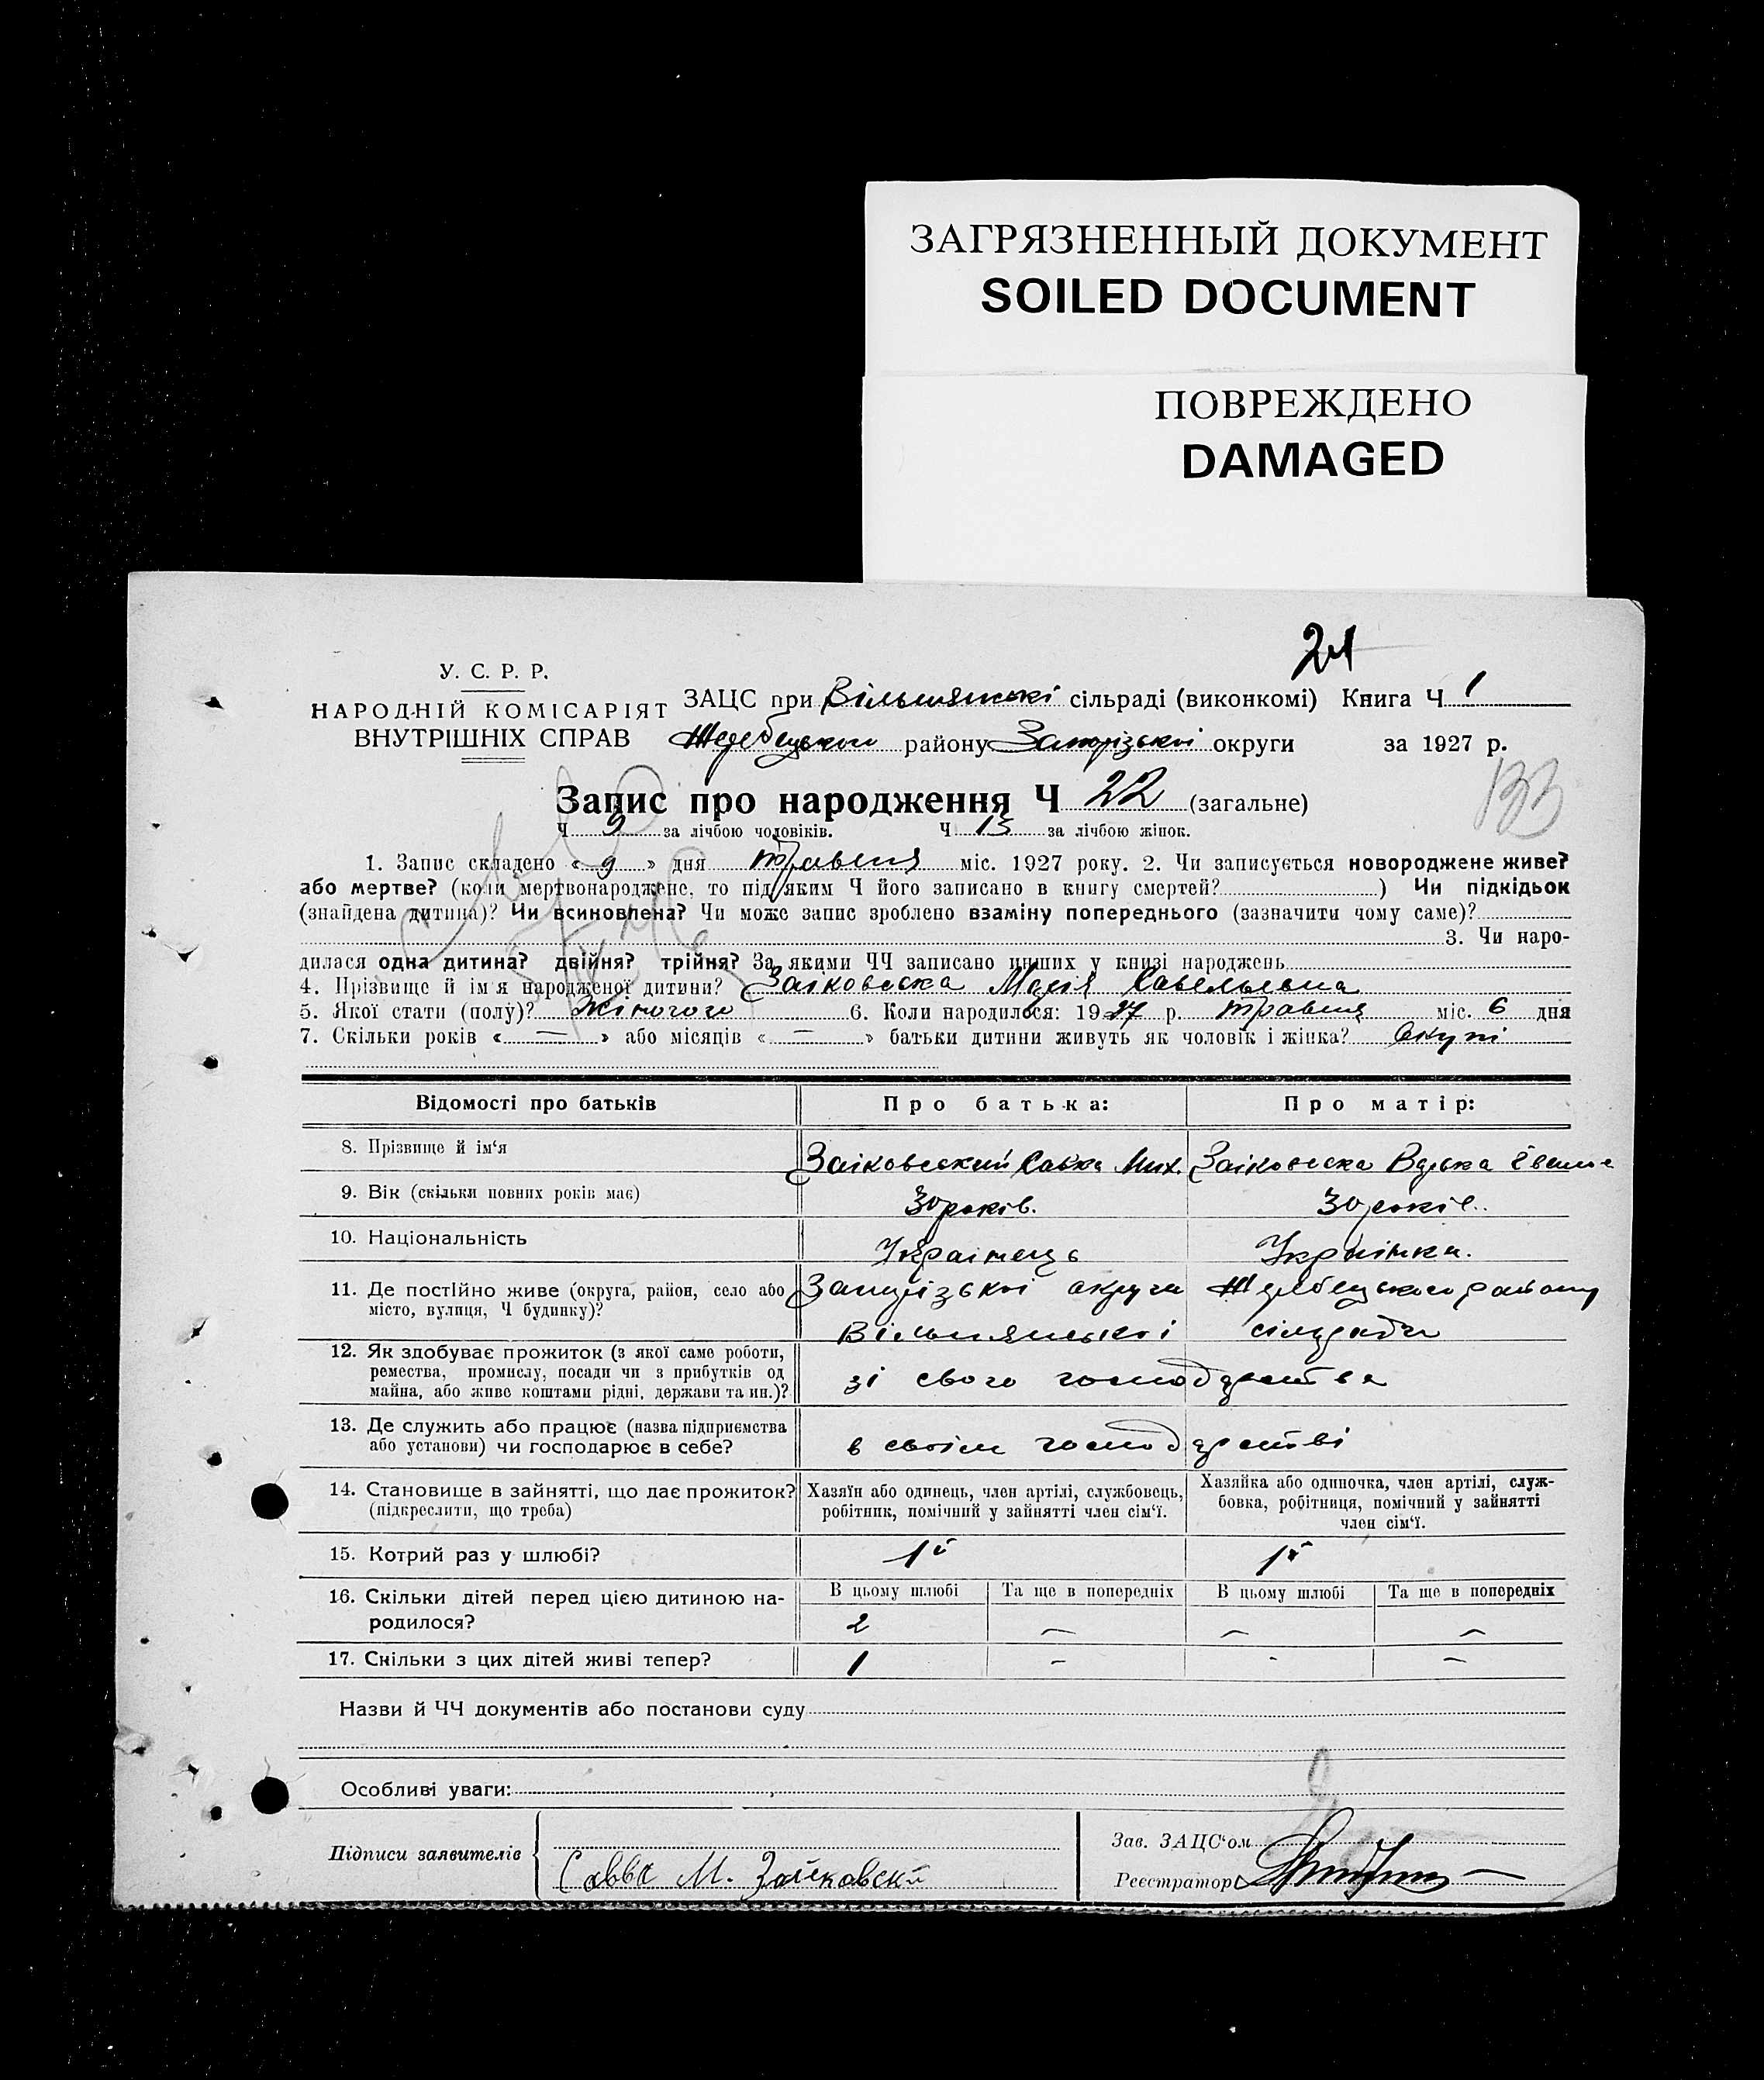 ЗАГРЯЗНЕННЫЙ ДОКУМЕНТ
SOILED DOCUMENT
ПОВРЕЖДЕНО
DAMAGED
21
У. С. Р. Р.
НАРОДНІЙ КОМІСАРІЯТ
ВНУТРІШНІХ СПРАВ
ЗАЦС при Вільшанські сільраді (виконкомі) Книга Ч 1
Жеребецького району Запорізької округи за 1927 р.
133
Запис про народження Ч 22 (загальне)
Ч 9 за лічбою чоловіків. Ч 13 за лічбою жінок.
1. Запис складено « 9 » дня травня міс. 1927 року. 2. Чи записується новороджене живе?
або мертве? (коли мертвонароджене, то під яким Ч його записано в книгу смертей? ) Чи підкідьок
(знайдена дитина)? Чи всиновлена? Чи може запис зроблено взаміну попереднього (зазначити чому саме)?
3. Чи наро-
дилася одна дитина? двійня? трійня? За якими ЧЧ записано инших у книзі народжень
4. Прізвище й ім'я народженої дитини? Заіковська Марія Савельевна
5. Якої стати (полу)? Жіночого 6. Коли народилося: 1927 р. травня міс. 6 дня
7. Скільки років « — » або місяців « — » батьки дитини живуть як чоловік і жінка? вкупі
Відомості про батьків
Про батька:
Про матір:
8. Прізвище й ім'я
Заіковський Савка Мих.
Заіковська
9. Вік (скільки повних років має)
30 років.
30 років.
10. Національність
Українець
Українка.
11. Де постійно живе (округа, район, село або
місто, вулиця, Ч будинку)?
Запорізькоі округи Жеребецького району
Вільшанськоі сільради
12. Як здобуває прожиток (з якої саме роботи,
ремества, промислу, посади чи з прибутків од
майна, або живе коштами рідні, держави та ин.)?
зі свого господарства
13. Де служить або працює (назва підприємства
або установи) чи господарює в себе?
в своїм господарстві
14. Становище в зайнятті, що дає прожиток?
(підкреслити, що треба)
Хазяїн або одинець, член артілі, службовець,
робітник, помічний у зайнятті член сім'ї.
Хазяйка або одиночка, член артілі, служ-
бовка, робітниця, помічний у зайнятті
член сім'ї.
15. Котрий раз у шлюбі?
1й
1й
16. Скільки дітей перед цією дитиною на-
родилося?
В цьому шлюбі
Та ще в попередніх
В цьому шлюбі
Та ще в попередніх
2 — — —
17. Скільки з цих дітей живі тепер?
1 — - —
Назви й ЧЧ документів або постанови суду
Особливі уваги:
Підписи заявителів
Савва М. Зайковский
Зав. ЗАЦС'ом
Реєстратор